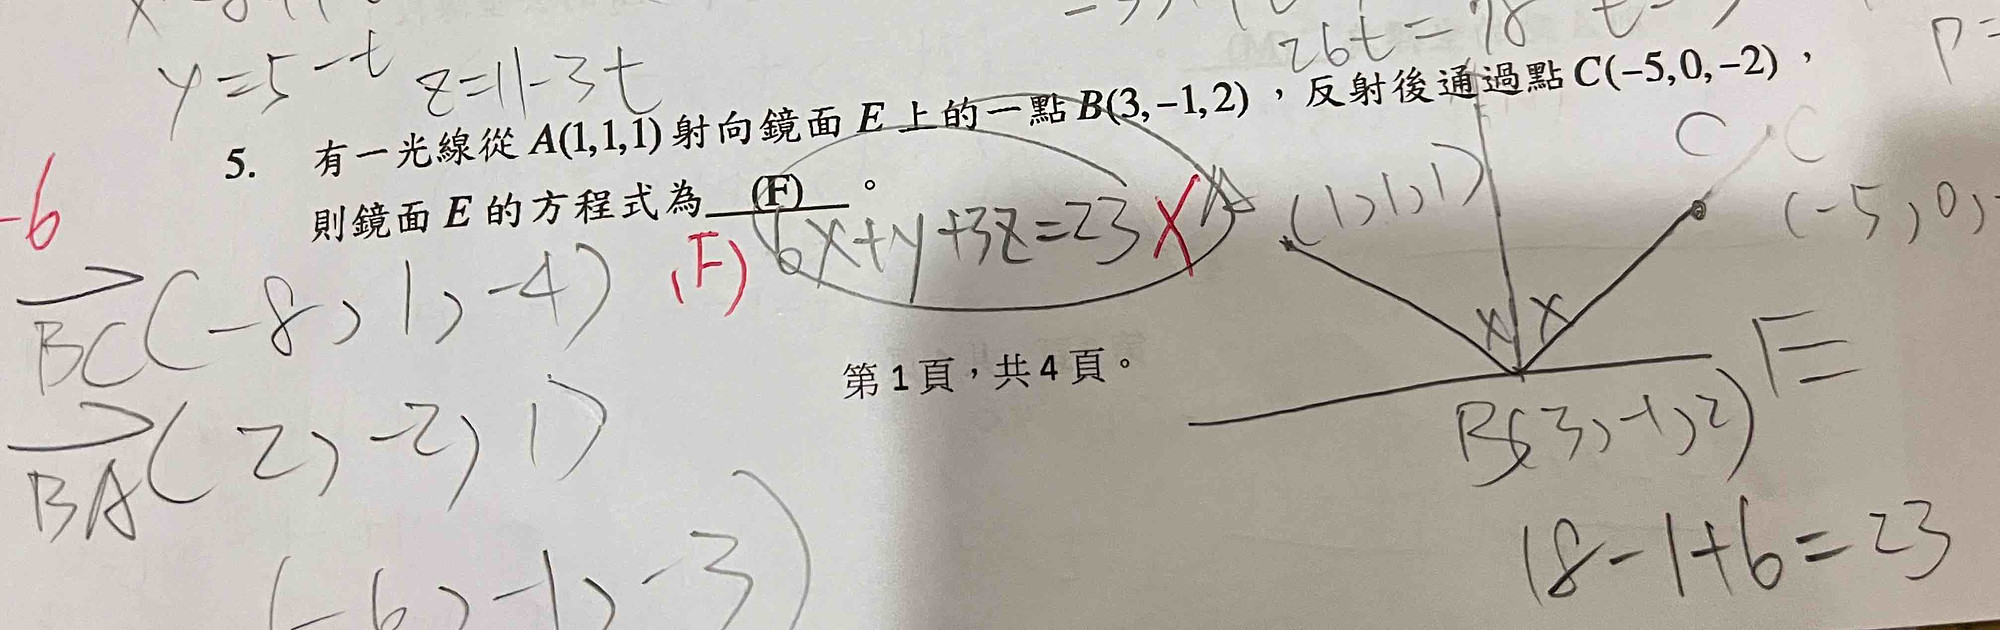 26t=78
y=5-t z=11-3t
5. 有一光線從 A(1,1,1) 射向鏡面 E 上的一點 B(3,-1,2),反射後通過點 C(-5,0,-2),
則鏡面 E 的方程式為 (F) 。
-6
(F) 6x+y+3z=23 X
A (1,1,1)
C C
(-5,0,
BC(-8,1,-4)
x x
E=
第 1 頁,共 4 頁。
BA(2,-2,1)
B(3,-1,2)
(-6,-1,-3)
18-1+6=23